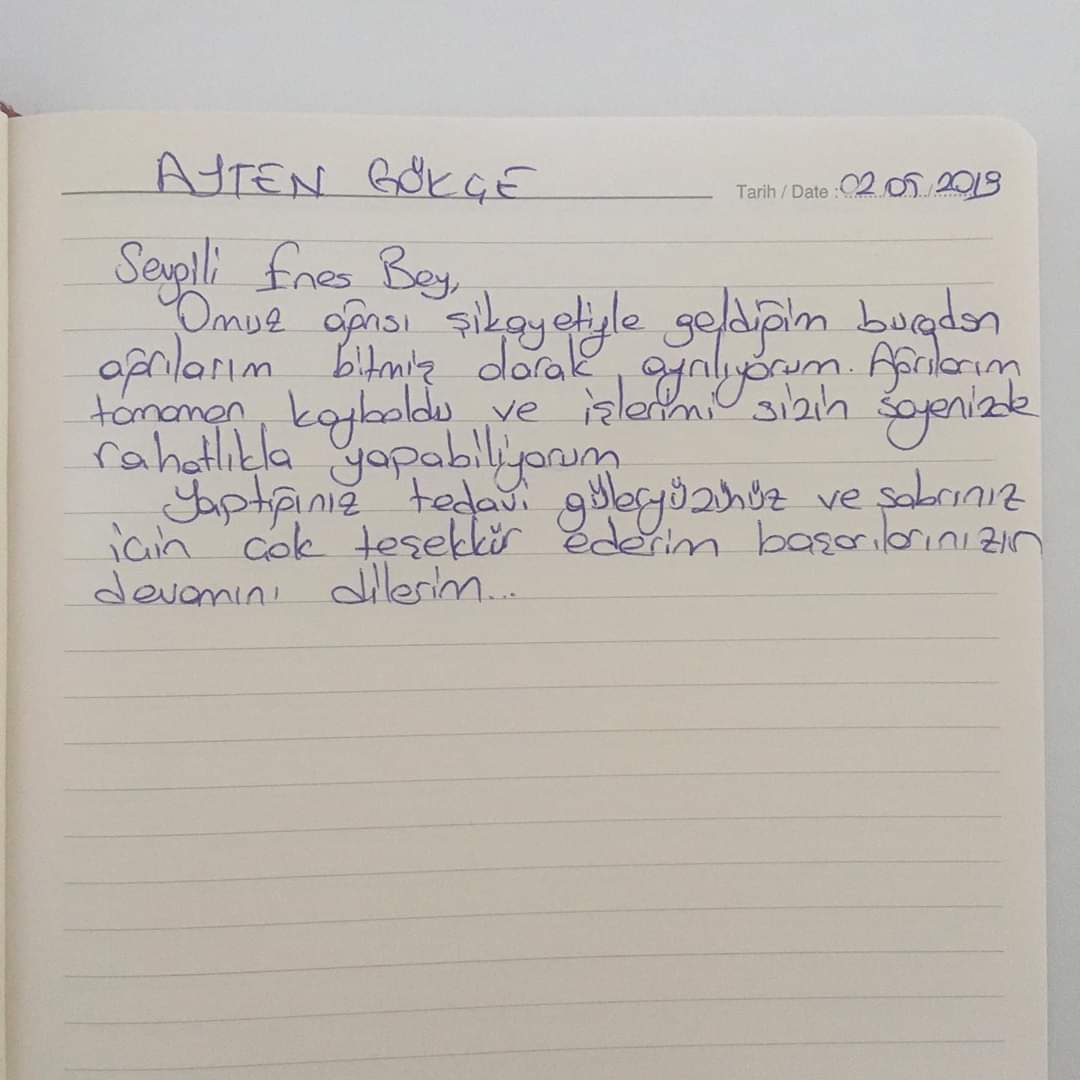 AYTEN GÖKÇE
Tarih / Date : 02/05/2019
Sevgili Enes Bey,
Omuz ağrısı şikayetiyle geldiğim burdan
ağrılarım bitmiş olarak ayrılıyorum. Ağrılarım
tamamen kayboldu ve işlerimi sizin sayenizde
rahatlıkla yapabiliyorum
Yaptığınız tedavi güleryüzünüz ve sabrınız
için çok teşekkür ederim başarılarınızın
devamını dilerim...